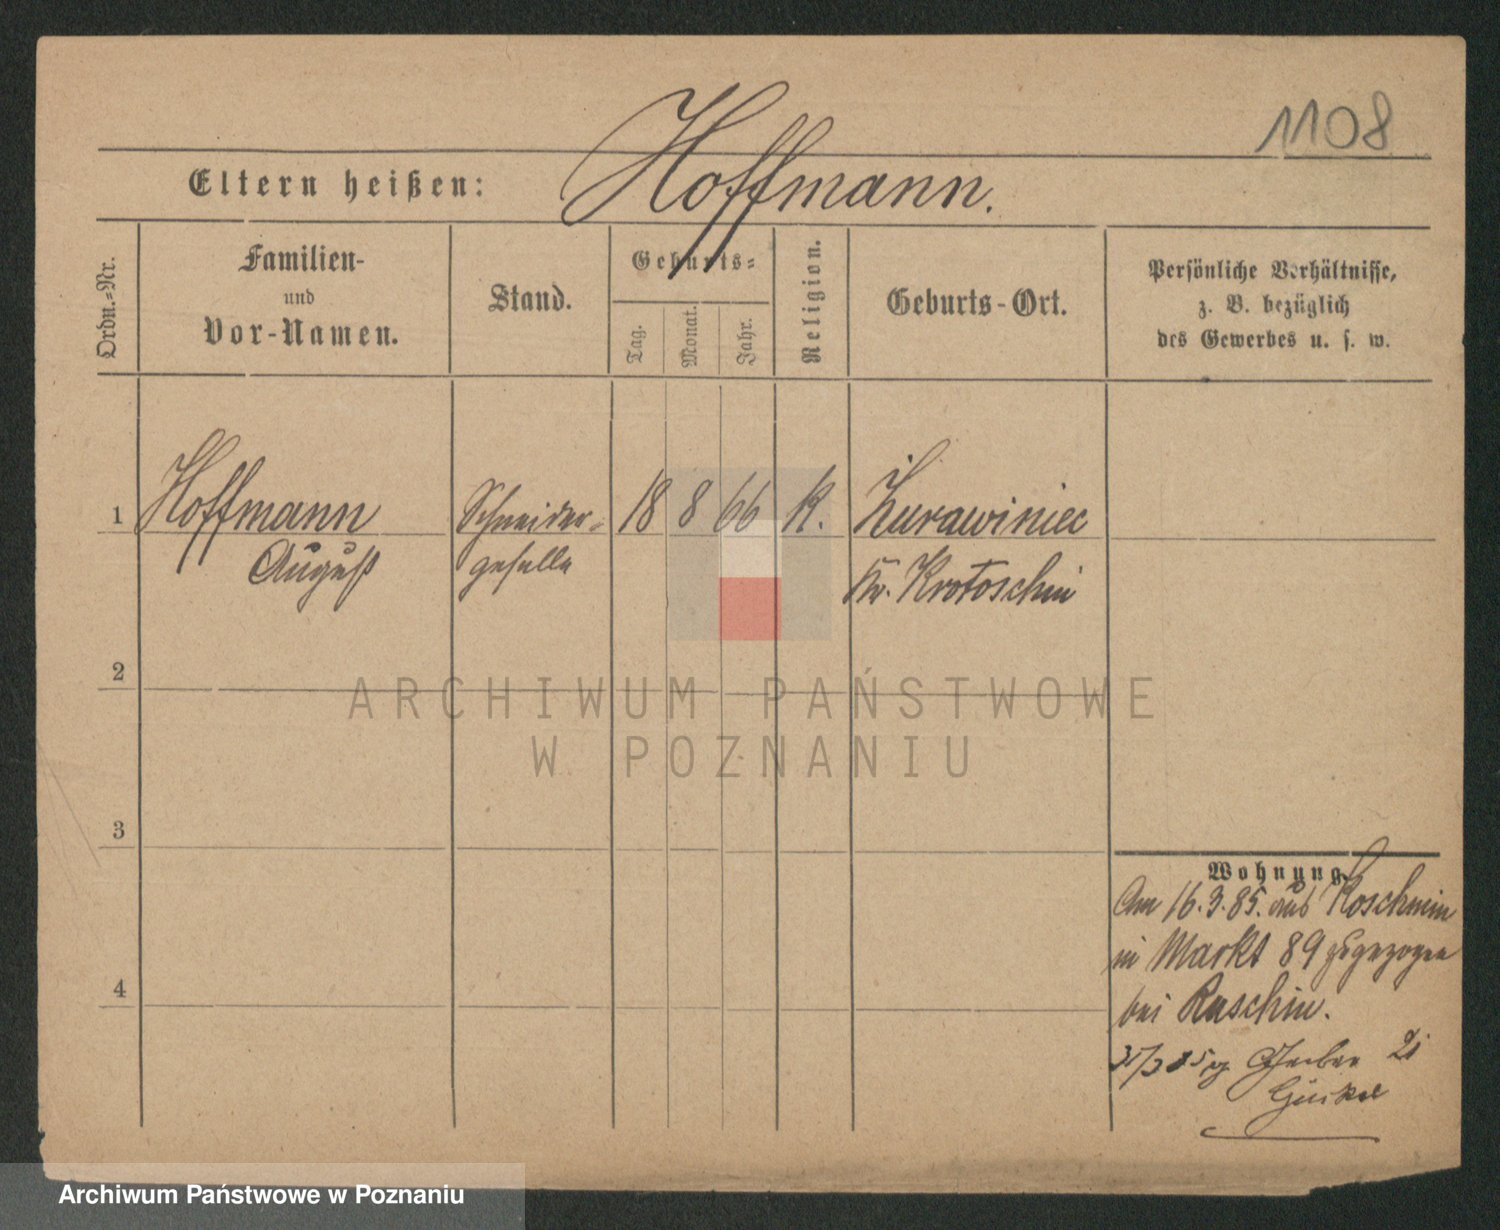 1108
Eltern heißen: Hoffmann.
Ordn.-Nr.
Familien-
und
Vor-Namen.
Stand.
Geburts-
Tag.
Monat.
Jahr.
Religion.
Geburts-Ort.
Persönliche Verhältnisse,
z. B. bezüglich
des Gewerbes u. s. w.
1 Hoffmann Schneider- 18 8 66 K. Żurawiniec
August geselle Kr. Krotoschin
2
3
4
Wohnung
Am 16.3.85. aus Koschmin
in Markt 89 zugezogen
bei Raschin.
Gerber
ARCHIWUM PAŃSTWOWE
W POZNANIU
Archiwum Państwowe w Poznaniu